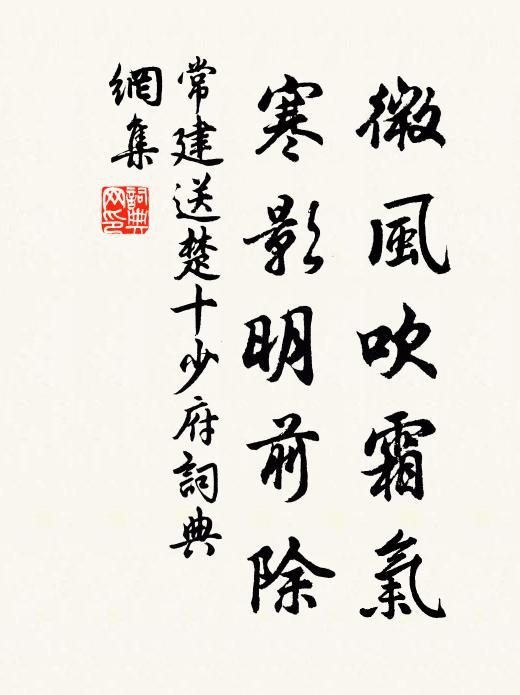 微風吹霜氣
寒影明前除
常建送楚十少府詞典
網集
詞典網印